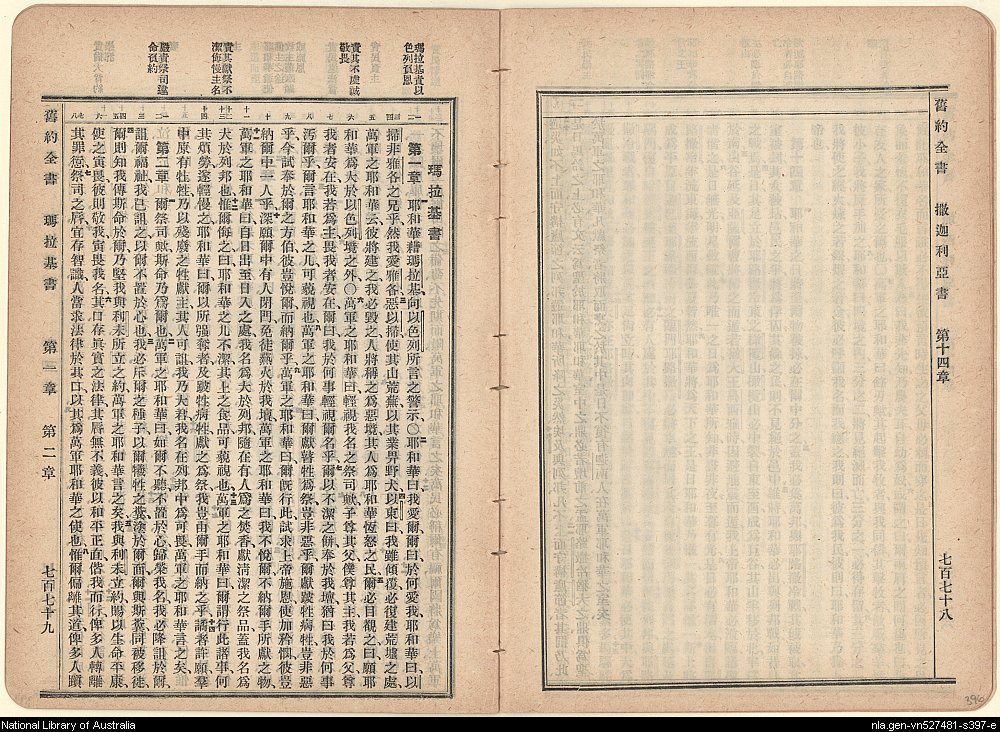 舊約全書 撒迦利亞書 第十四章 七百七十八
瑪拉基責以
色列負恩
責其不虔誠
敬畏
責其獻祭不
潔侮慢主名
嚴責祭司違
命負約
瑪拉基書
第一章 耶和華藉瑪拉基向以色列所言之警示〇耶和華曰我愛爾爾曰於何愛我耶和華曰以
掃非雅各之兄乎然我愛雅各惡以掃使其山荒蕪以其業畀野犬以東曰我雖傾覆必復建荒墟之處
萬軍之耶和華云彼將建之我必毀之人將稱之爲惡境其人爲耶和華恆怒之民爾必目觀之曰願耶
和華爲大於以色列境之外〇萬軍之耶和華曰輕視我名之祭司歟子尊其父僕尊其主我若爲父尊
我者安在我若爲主畏我者安在爾曰我於何事輕視爾名乎爾以不潔之餅奉於我壇猶曰我於何事
污爾乎爾言耶和華之几可藐視也萬軍之耶和華曰爾獻瞽牲爲祭豈非惡乎爾獻跛牲病牲豈非惡
乎今試奉於爾之方伯彼豈悅爾而納爾乎萬軍之耶和華曰爾旣行此試求上帝施恩使加矜憫彼豈
納爾中一人乎深願爾中有人閉門免徒爇火於我壇萬軍之耶和華曰我不悅爾不納爾手所獻之物
萬軍之耶和華曰自日出至日入之處我名爲大於列邦隨在有人爲之焚香獻淸潔之祭品蓋我名爲
大於列邦也惟爾侮之曰耶和華之几不潔其上之食品可藐視也萬軍之耶和華曰爾謂行此諸事何
其煩勞遂輕慢之耶和華曰爾以所强奪者及跛牲病牲獻之爲祭我豈由爾手而納之乎譎者許願羣
中原有牡牲乃以殘廢之牲獻主其人可詛我乃大君我名在列邦中爲可畏萬軍之耶和華言之矣
第二章 祭司歟斯命乃爲爾也萬軍之耶和華曰如爾不聽不置於心歸榮我名我必降詛於爾
詛爾福祉我已詛之以爾不置於心也我必斥爾之種子以爾犧牲之糞塗於爾面爾與斯糞同被移徙
爾則知我傳斯命於爾乃堅我與利未所立之約萬軍之耶和華言之矣我與利未立約賜以生命平康
使之寅畏彼則敬我寅畏我名其口存眞實之法律其唇無不義彼以和平正直偕我而行俾多人轉離
其罪愆祭司之唇宜存智識人當求法律於其口以其爲萬軍耶和華之使也惟爾偏離其道俾多人躓
舊約全書 瑪拉基書 第一章 第二章 七百七十九
396
National Library of Australia
nla.gen-vn527481-s397-e